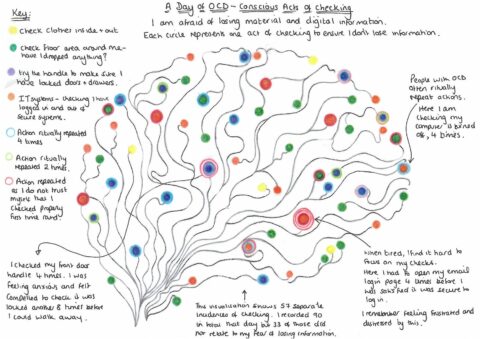 Key:
Check clothes inside + out
Check floor area around me-
have I dropped anything?
Try the handle to make sure I
have locked doors + drawers.
IT systems - checking I have
logged in and out of
secure systems.
Action ritually repeated
4 times
Action ritually
repeated 2 times.
Action repeated
as I do not trust
myself has I
checked properly
first time round
A Day of OCD - Conscious Acts of checking
I am afraid of losing material and digital information.
Each circle represents one act of checking to ensure I don't lose information.
People with OCD
often ritually
repeat actions.
Here I am
checking my
computer is turned
off, 4 times.
I checked my front door
handle 4 times. I was
feeling anxious and felt
compelled to check it was
locked another 8 times before
I could walk away.
This visualisation shows 57 separate
incidences of checking. I recorded 90
in total that day but 33 of those did
not relate to my fear of losing information.
When tired, I find it hard to
focus on my checks.
Here I had to open my email
login page 4 times before I
was satisfied it was secure to
log in.
I remember feeling frustrated and
distressed by this.